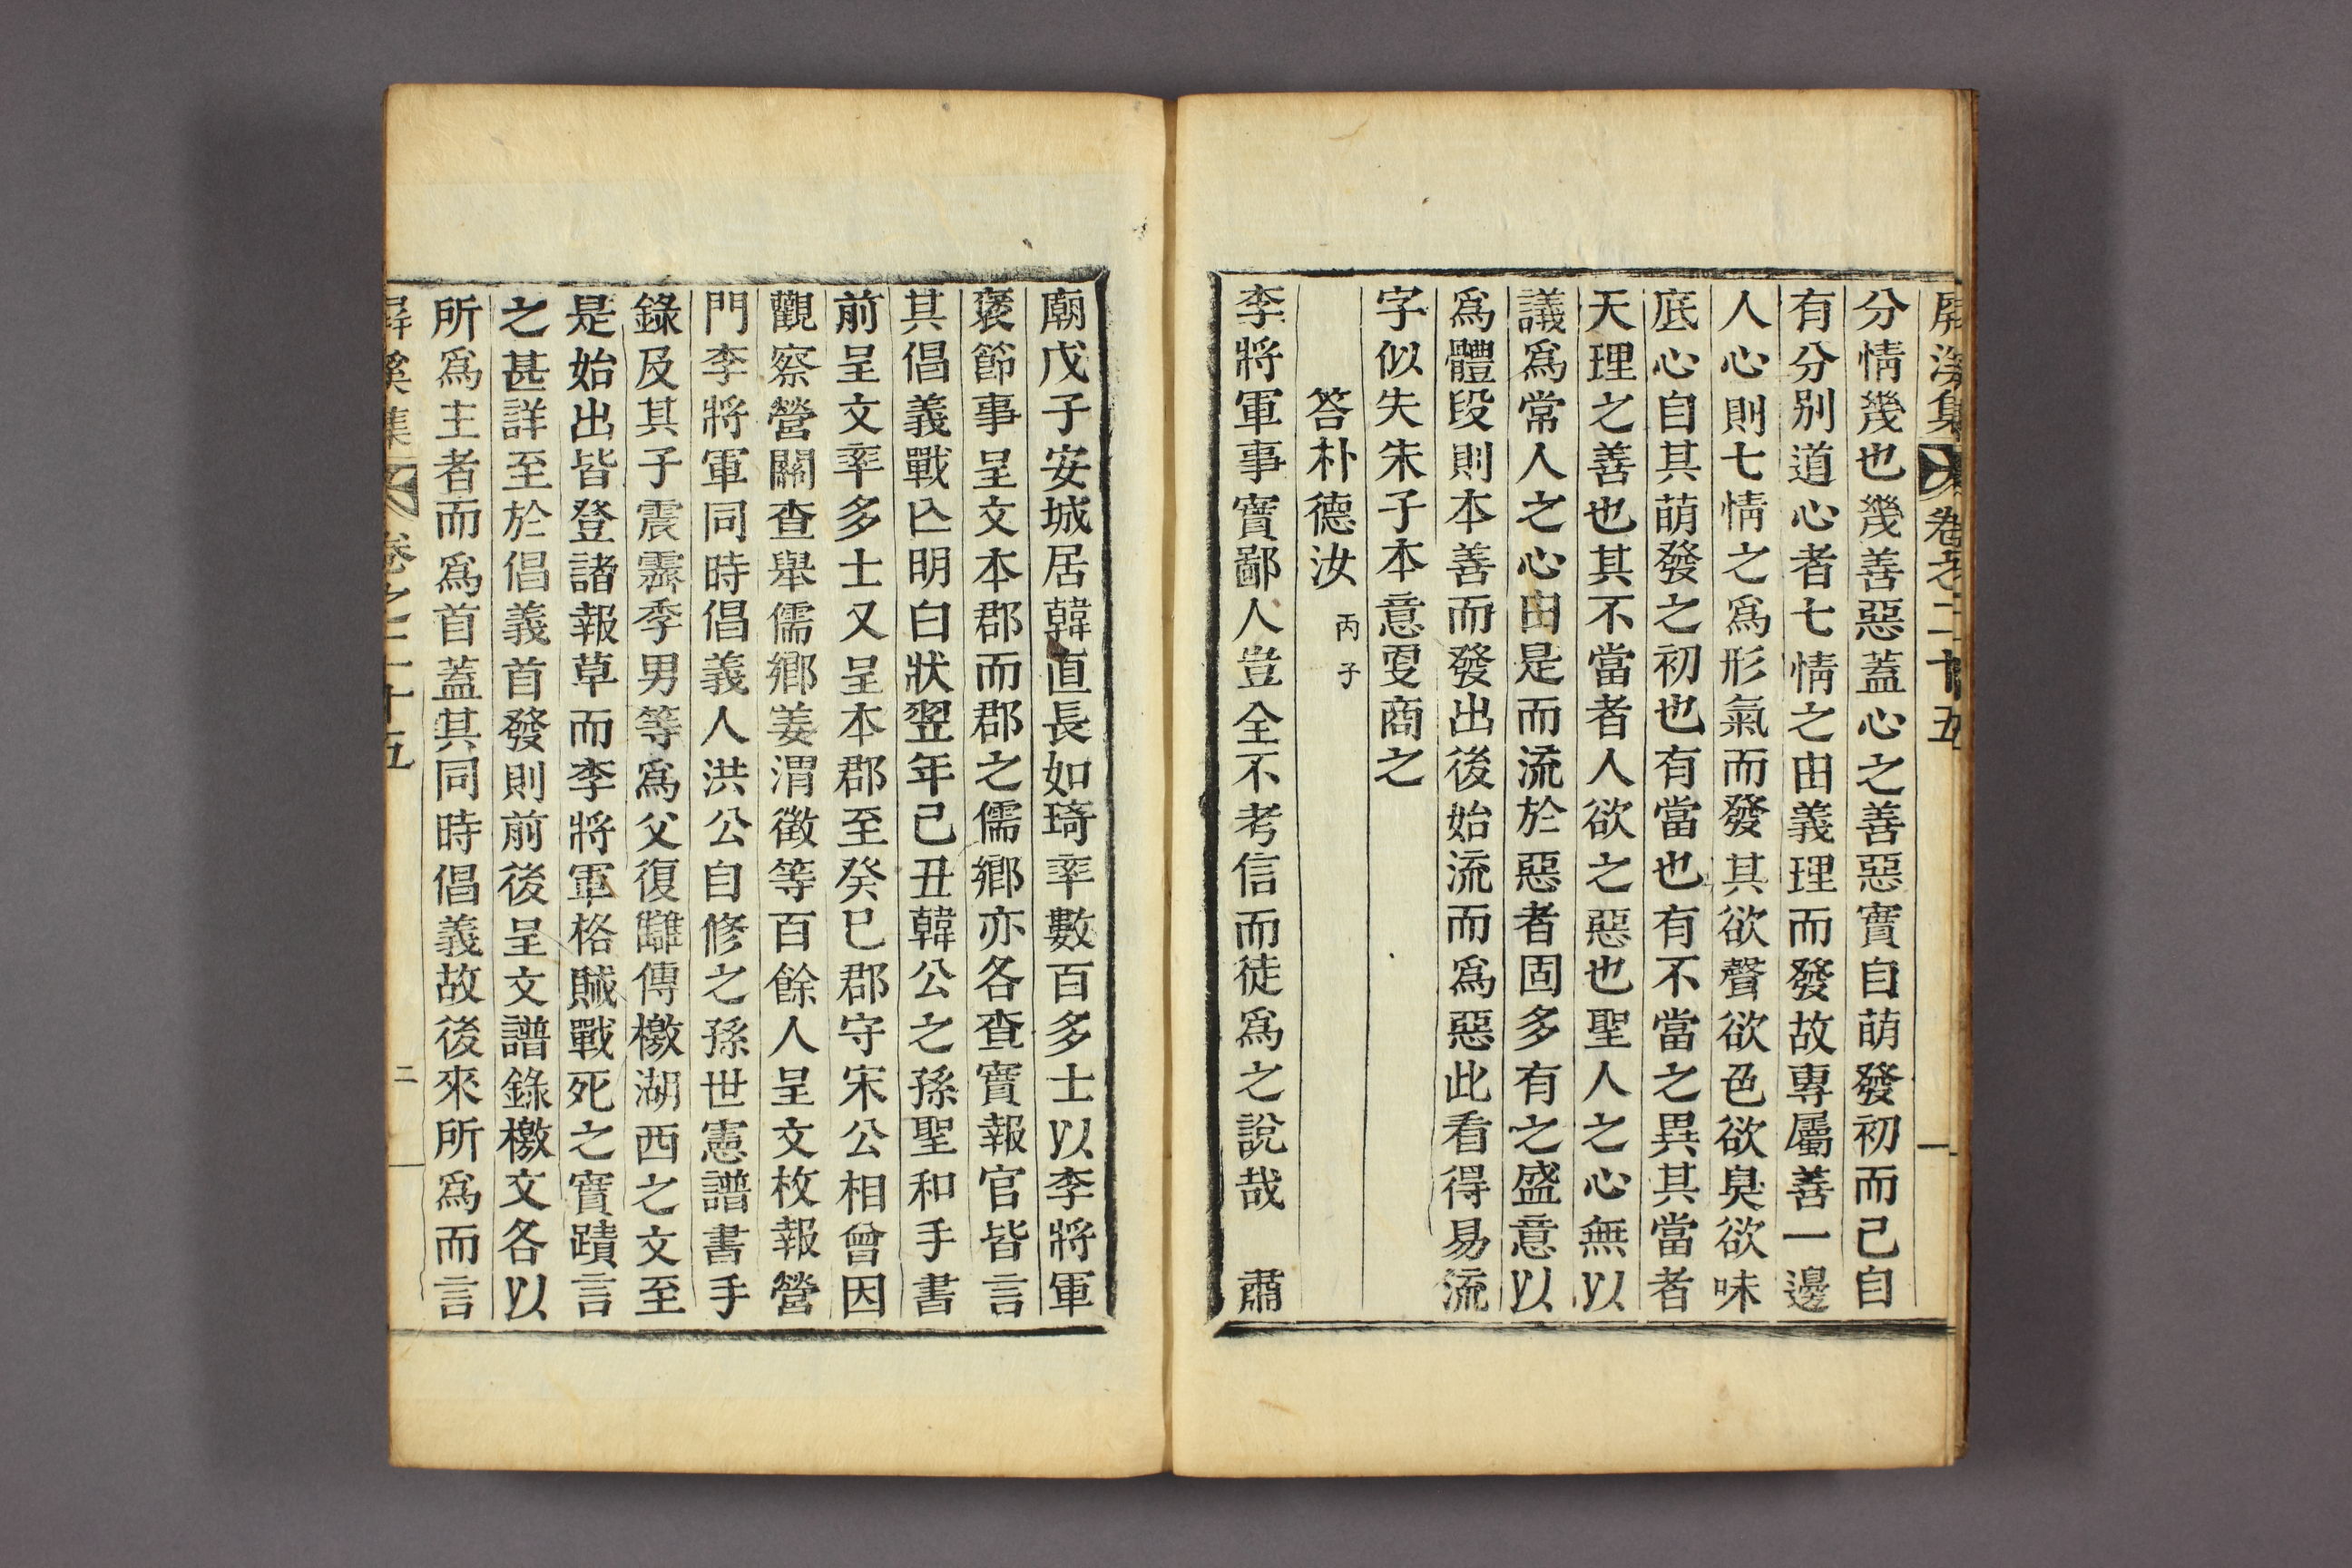 屏溪集 卷之二十五 一
分情幾也幾善惡蓋心之善惡實自萌發初而已自
有分别道心者七情之由義理而發故專屬善一邊
人心則七情之爲形氣而發其欲聲欲色欲臭欲味
底心自其萌發之初也有當也有不當之異其當者
天理之善也其不當者人欲之惡也聖人之心無以
議爲常人之心由是而流於惡者固多有之盛意以
爲體段則本善而發出後始流而爲惡此看得易流
字似失朱子本意更商之
答朴德汝 丙子
李將軍事實鄙人豈全不考信而徒爲之說哉 肅
廟戊子安城居韓直長如琦率數百多士以李將軍
褒節事呈文本郡而郡之儒鄉亦各查實報官皆言
其倡義戰亾明白狀翌年己丑韓公之孫聖和手書
前呈文率多士又呈本郡至癸巳郡守宋公相曾因
觀察營關查舉儒鄉姜渭徵等百餘人呈文枚報營
門李將軍同時倡義人洪公自修之孫世憲譜書手
錄及其子震霽季男等爲父復讎傳檄湖西之文至
是始出皆登諸報草而李將軍格賊戰死之實蹟言
之甚詳至於倡義首發則前後呈文譜錄檄文各以
所爲主者而爲首蓋其同時倡義故後來所爲而言
屏溪集 卷之二十五 二